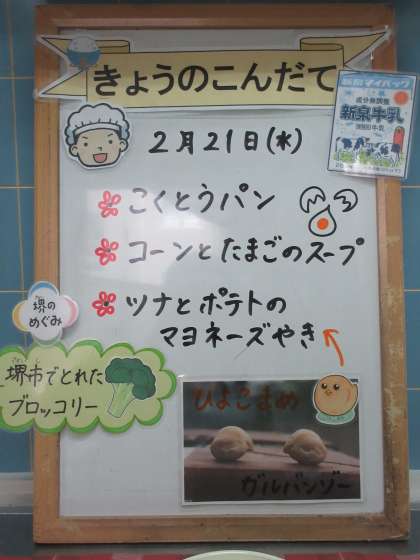 きょうのこんだて
2月21日(水)
成分無調整
新泉牛乳
こくとうパン
コーンとたまごのスープ
ツナとポテトの
マヨネーズやき
堺の
めぐみ
堺市でとれた
ブロッコリー
ひよこまめ
ガルバンゾー